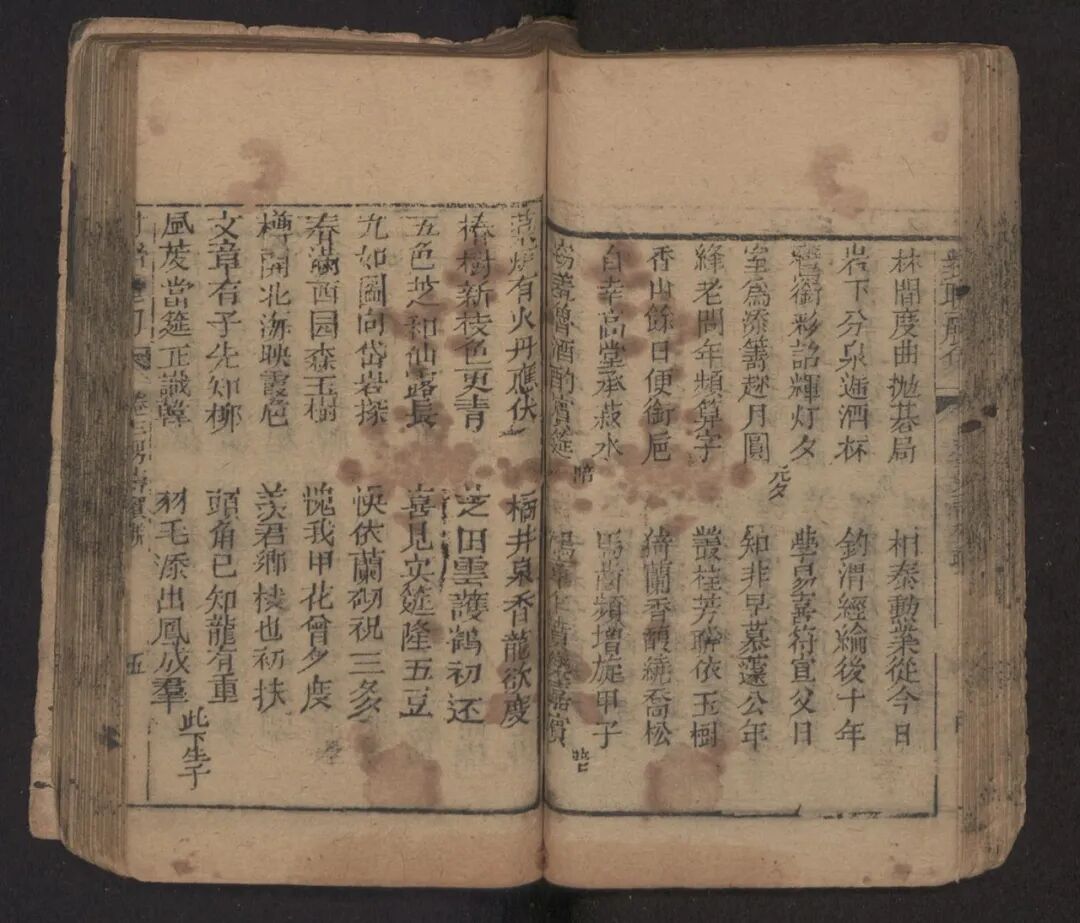 林間度曲抛棊局 相秦勳業從今日
岩下分泉遞酒杯 釣渭經綸後十年
銜彩詔輝灯夕 學易喜符宣父日
室為添籌趂月圓 元夕 知非早慕蘧公年
絳老問年頻算字 叢桂芳聯依玉樹
香山餘日便銜巵 猗蘭香馥繞喬松
自幸高堂承菽水 馬齒頻增旋甲子
酒酌賓筵
有火丹應伏 橘井泉香龍欲度
椿樹新枝色更青 芝田雲護鶴初还
五色芝和仙露長 喜見宾筵隆五豆
九如圖向岱岩採 快依蘭砌祝三多
春滿西园森玉樹 愧我甲花曾夕度
樽開北海映霞巵 羡君鄉校也初扶
文章有子先知柳 頭角已知龍有重
風度當筵正識韓 羽毛添出鳳成羣 此下生子
五